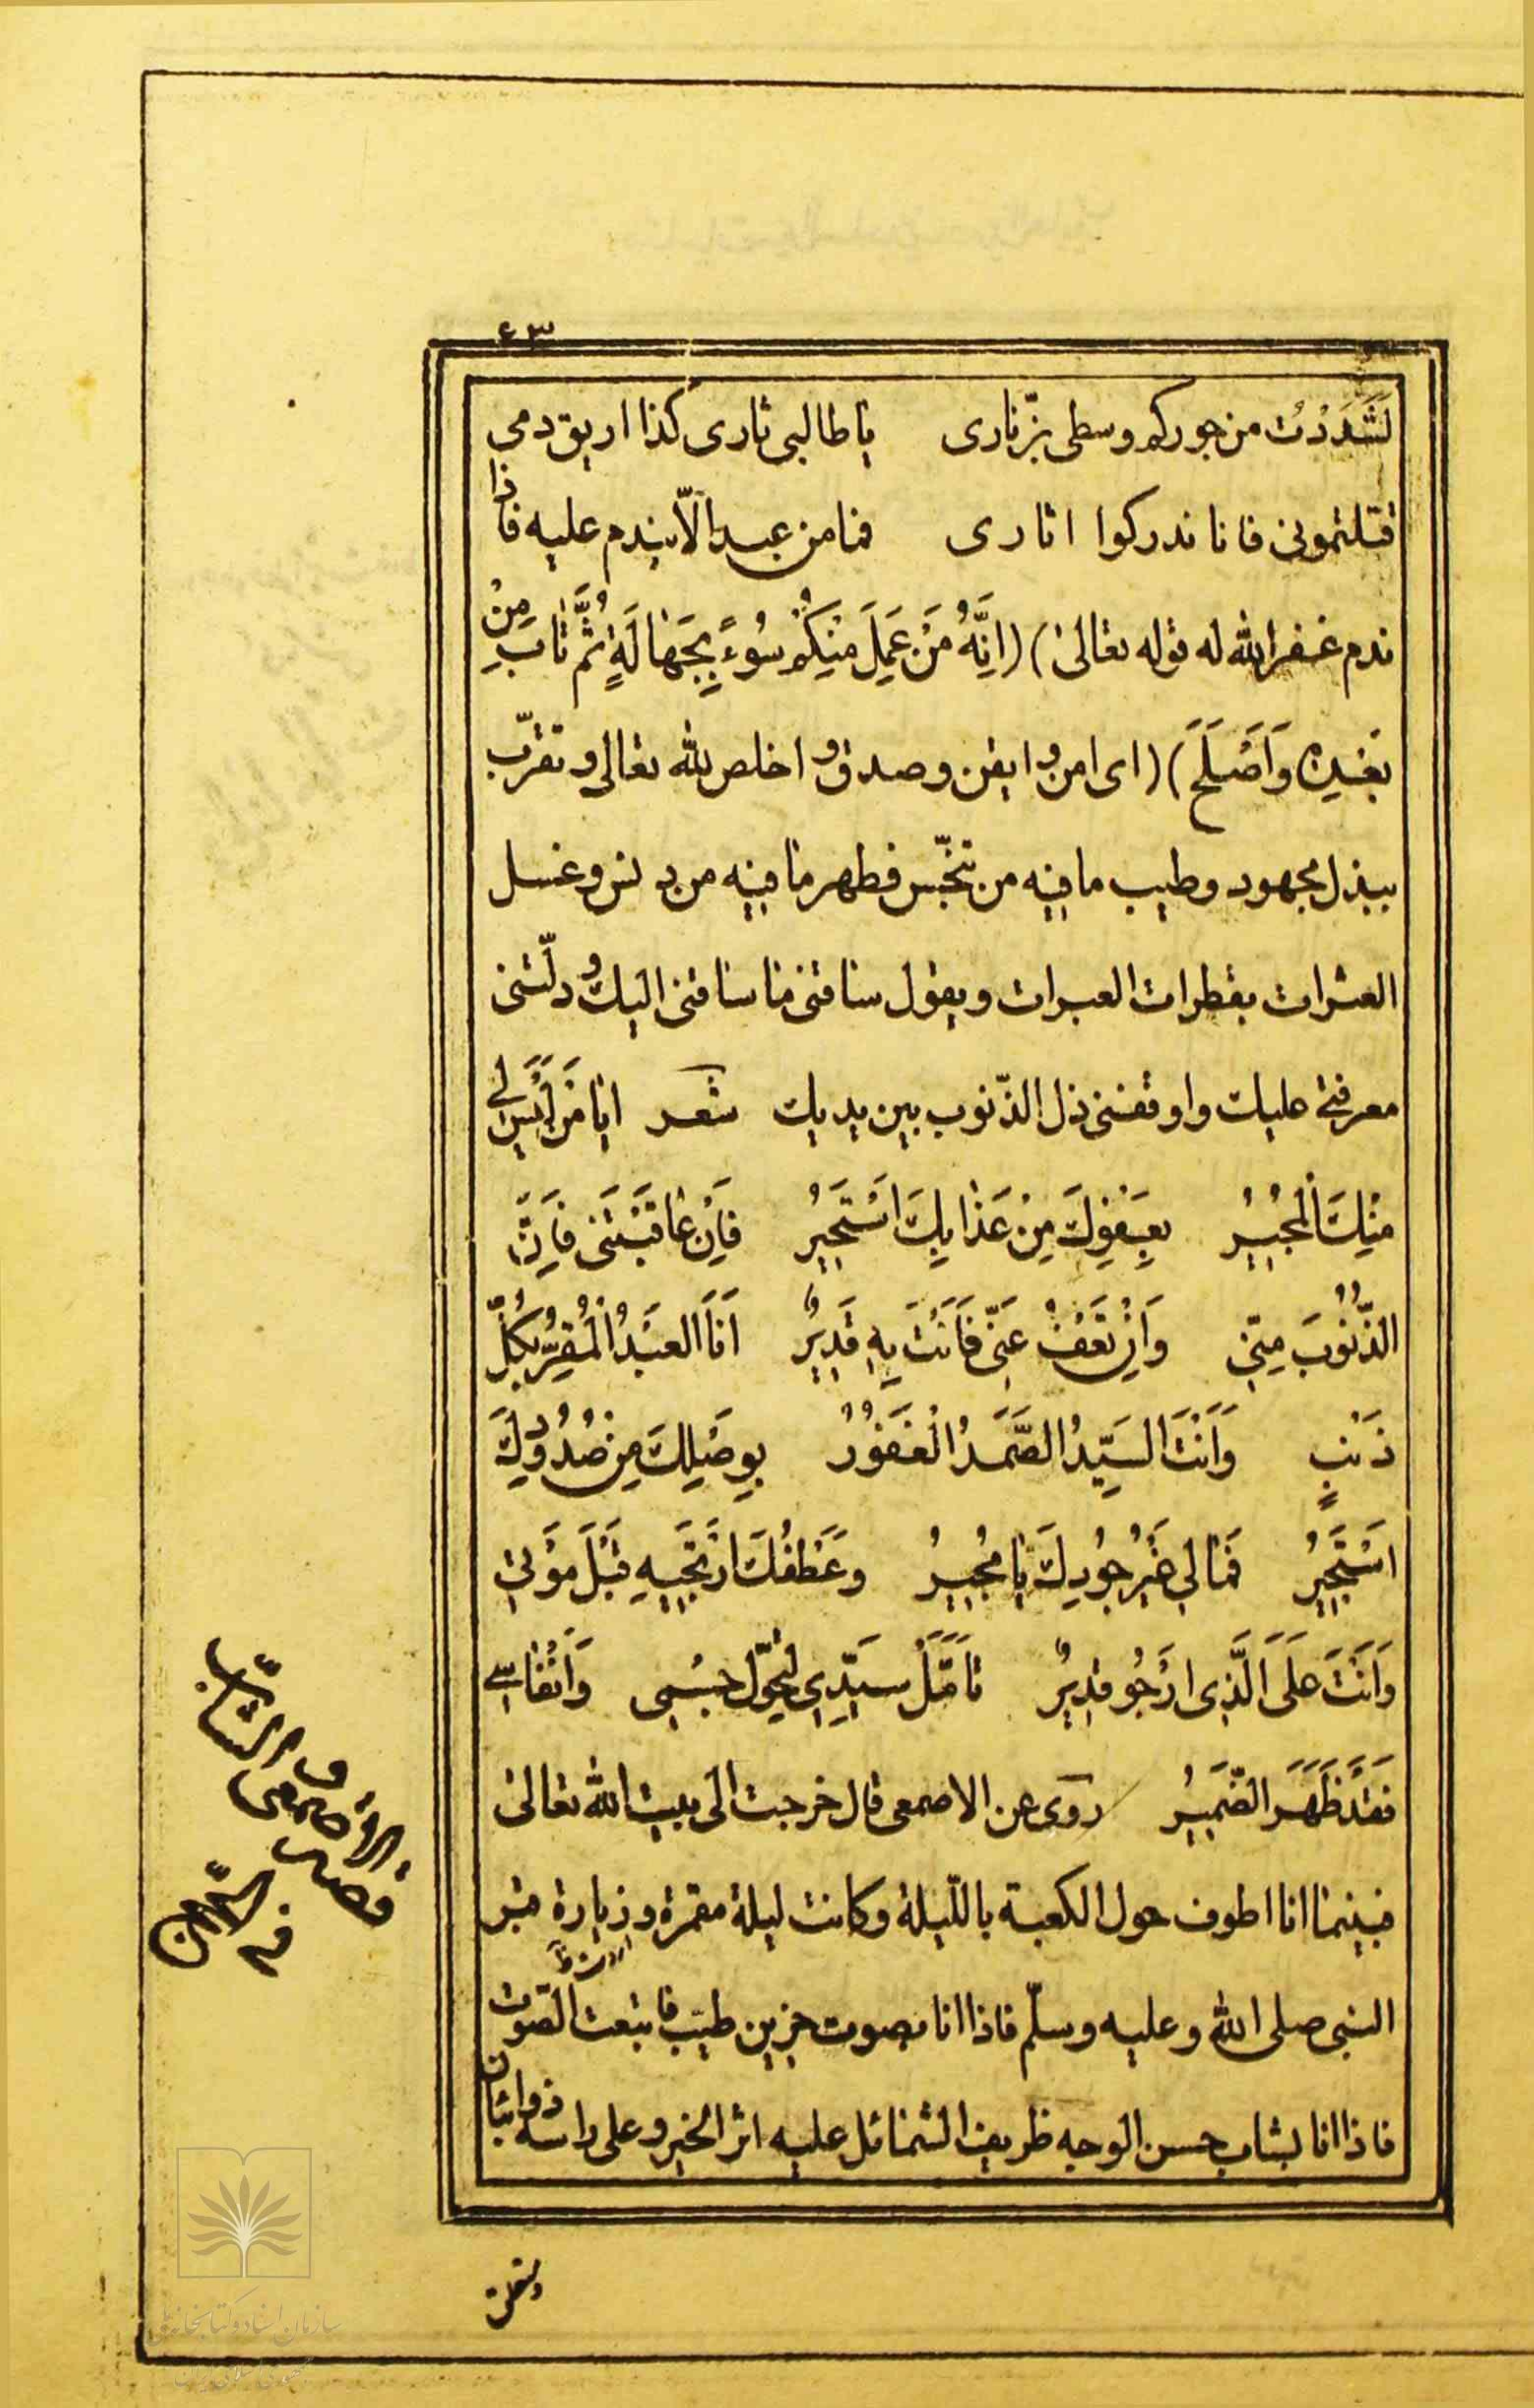 ٤٣
لَشَدَدْتُ من جوركم وسطى بزّنارى يا طالبى ثارى كذا اريق دمى
قتلتمونى فانا ندركوا اثارى فما من عبد الّا يندم عليه فاذا
ندم غفر الله له قوله تعالى) (اِنَّهُ مَنْ عَمِلَ مِنْكُمْ سُوءً بِجَهالَةٍ ثُمَّ تابَ مِنْ
بَعْدِهِ وَاَصْلَحَ) (اى امن و ايقن و صدق و اخلص لله تعالى و تقرّب
ببذل مجهود و طيب ما فيه من تنجّس فطهر ما فيه من دنس و غسل
العثرات بقطرات العبرات و يقول ساقنى ما ساقنى اليك و دلّتنى
معرفتى عليك و اوقفنى ذل الذّنوب بين يديك شعر ايا مَنْ لَيْسَ لى
مِنْكَ الْمُجيرُ بِعَفْوِكَ مِنْ عَذابِكَ اَسْتَجيرُ فَاِنْ عاقَبْتَنى فَاِنَّ
الذُّنُوبَ مِنّى وَاِنْ تَعْفُ عَنّى فَاَنْتَ بِهِ قَديرٌ اَنَا الْعَبْدُ الْمُقِرُّ بِكُلِّ
ذَنْبٍ وَاَنْتَ السَّيِّدُ الصَّمَدُ الْغَفُورُ بِوَصْلِكَ مِنْ صُدُودِكَ
اَسْتَجيرُ فَمالى غَيْرُ جُودِكَ يا مُجيرُ وَعَطْفُكَ اَرْتَجيهِ قَبْلَ مَوْتى
وَاَنْتَ عَلَى الَّذى اَرْجُو قديرٌ تَاَمَّلْ سَيِّدى لِنُحُولِ جِسْمى وَاَنْفاسى
فَقَدْ ظَهَرَ الضَّميرُ روى عن الاصمعى قال خرجت الى بيت الله تعالى
فبينما انا اطوف حول الكعبة بالليلة وكانت ليلة مقمرة و زيارة قبر
النبى صلى الله و عليه و سلّم فاذا انا بصوت حزين طيّب فاتبعت الصّوت
فاذا انا بشاب حسن الوجه ظريف الشمائل عليه اثر الخير و على راسه ذوابتان
فى السّلام
قصّه
الاصمعى
و الشّاب
سازمان اسناد و کتابخانه ملی